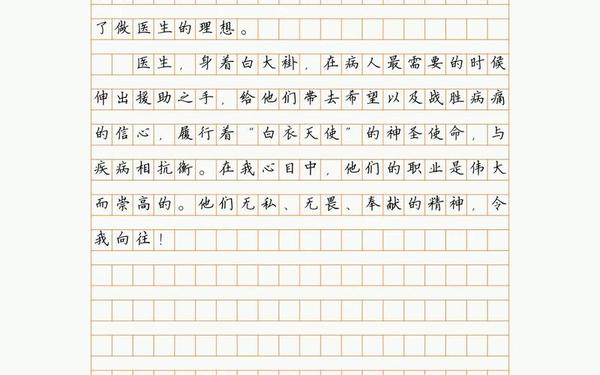 了做医生的理想。
医生，身着白大褂，在病人最需要的时候
伸出援助之手，给他们带去希望以及战胜病痛
的信心，履行着“白衣天使”的神圣使命，与
疾病相抗衡。在我心目中，他们的职业是伟大
而崇高的。他们无私、无畏、奉献的精神，令
我向往！